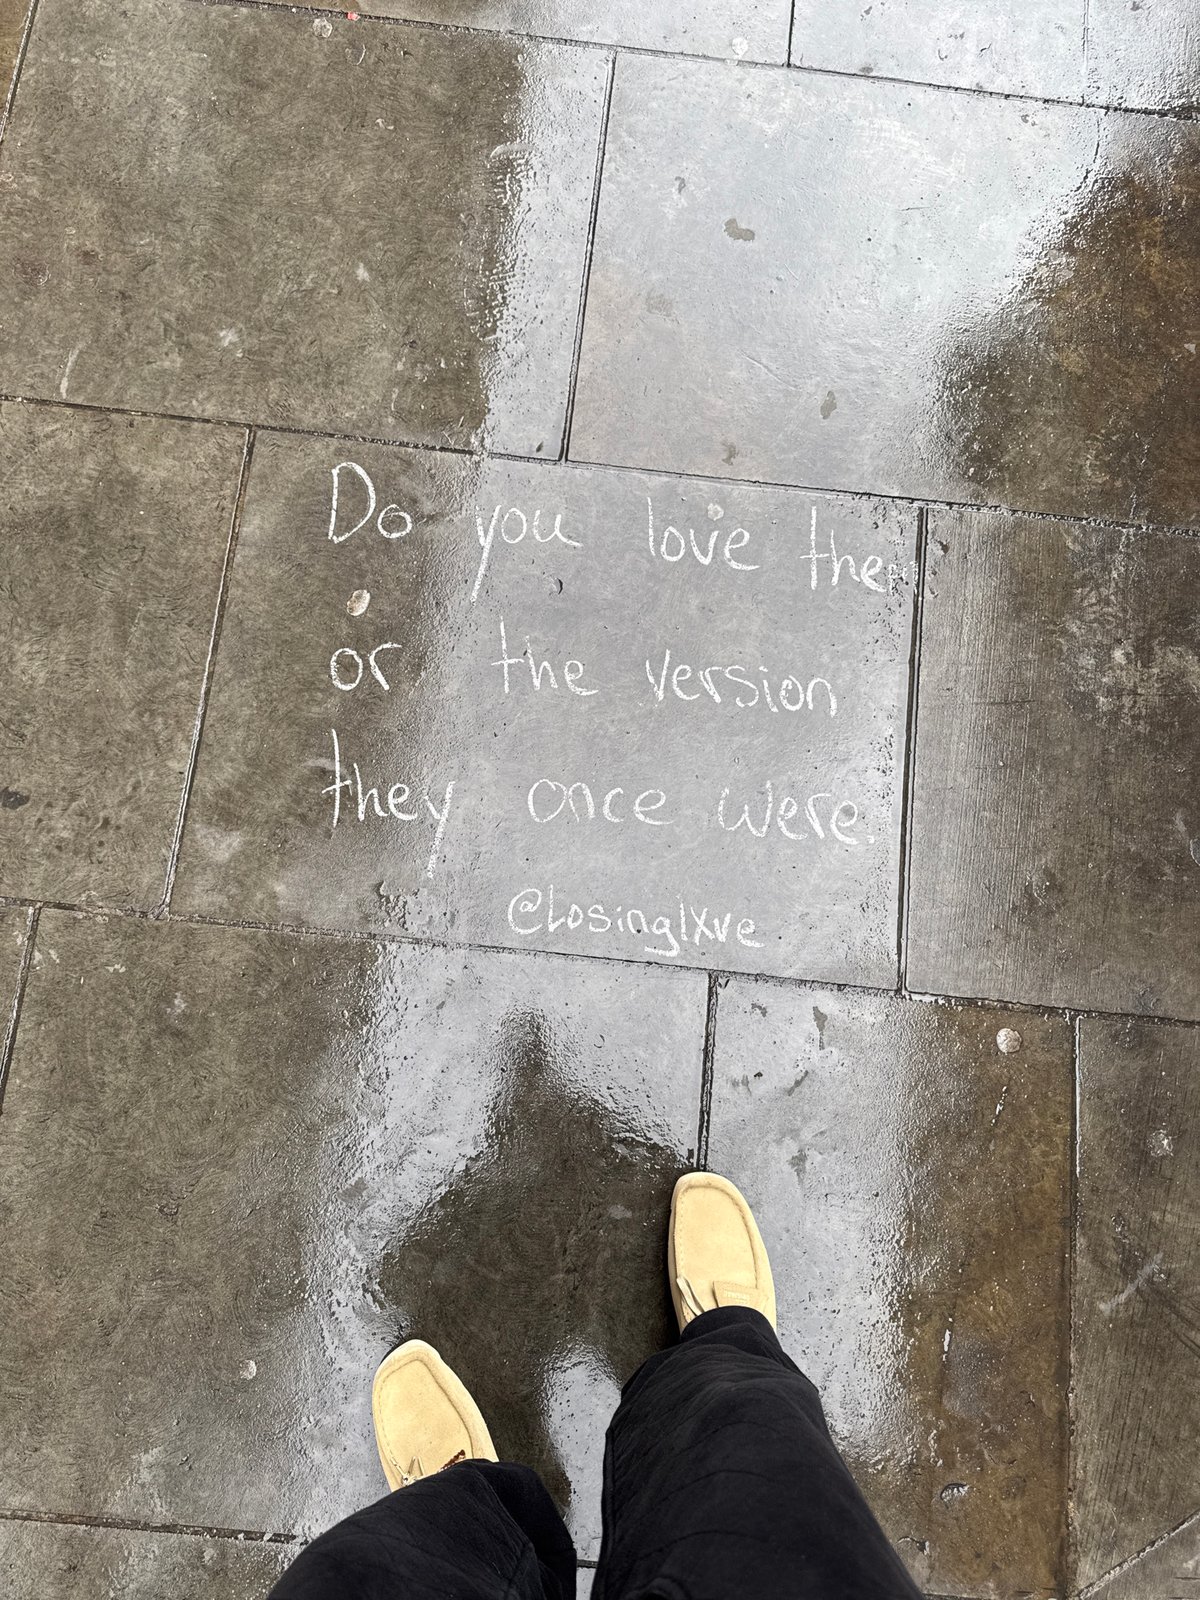 Do you love them
or the version
they once were.
@losinglxve